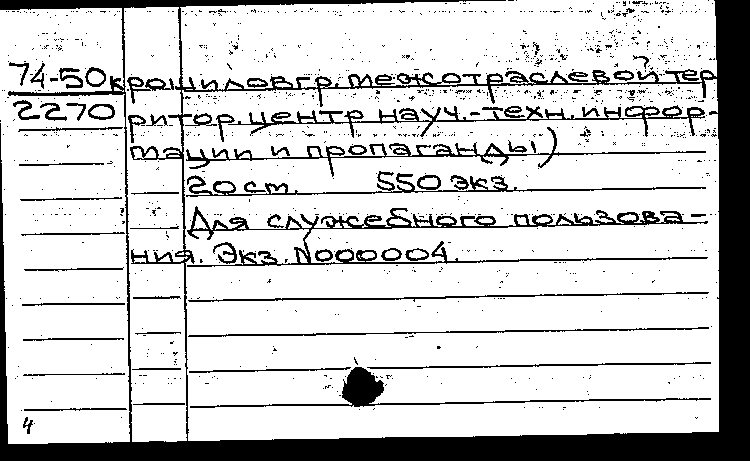 74-50к рошиловгр. межотраслевой тер
2270 ритор. центр науч.-техн. инфор-
мации и пропаганды)
20 ст. 550 экз.
Для служебного пользова-
ния. Экз. N000004.
4